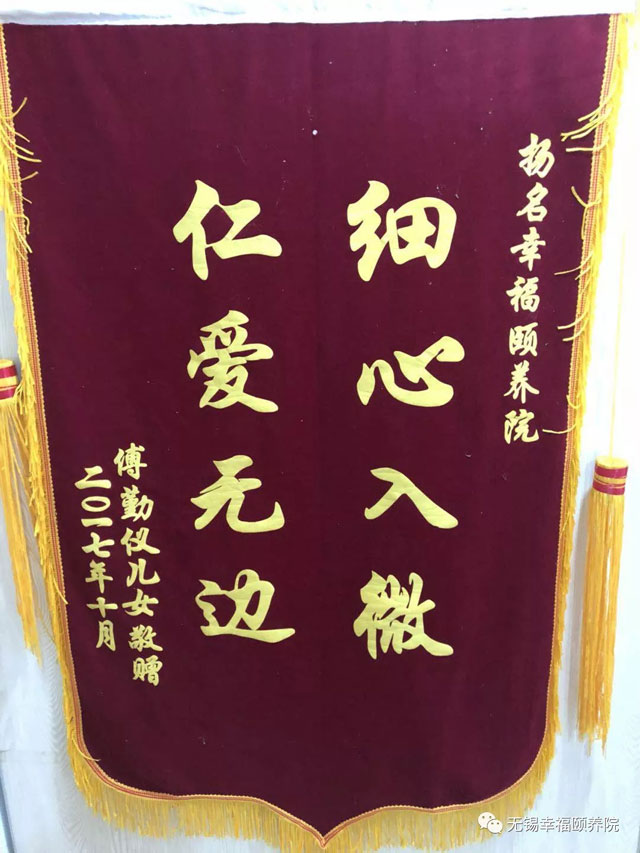 扬名幸福颐养院
细心入微
仁爱无边
傅勤仪儿女敬赠
二〇一七年十月
无锡幸福颐养院